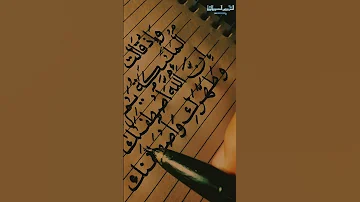 وإذ قالت
الملئكة يم
إن الله اصطفىك
وطهرك واصطفىك